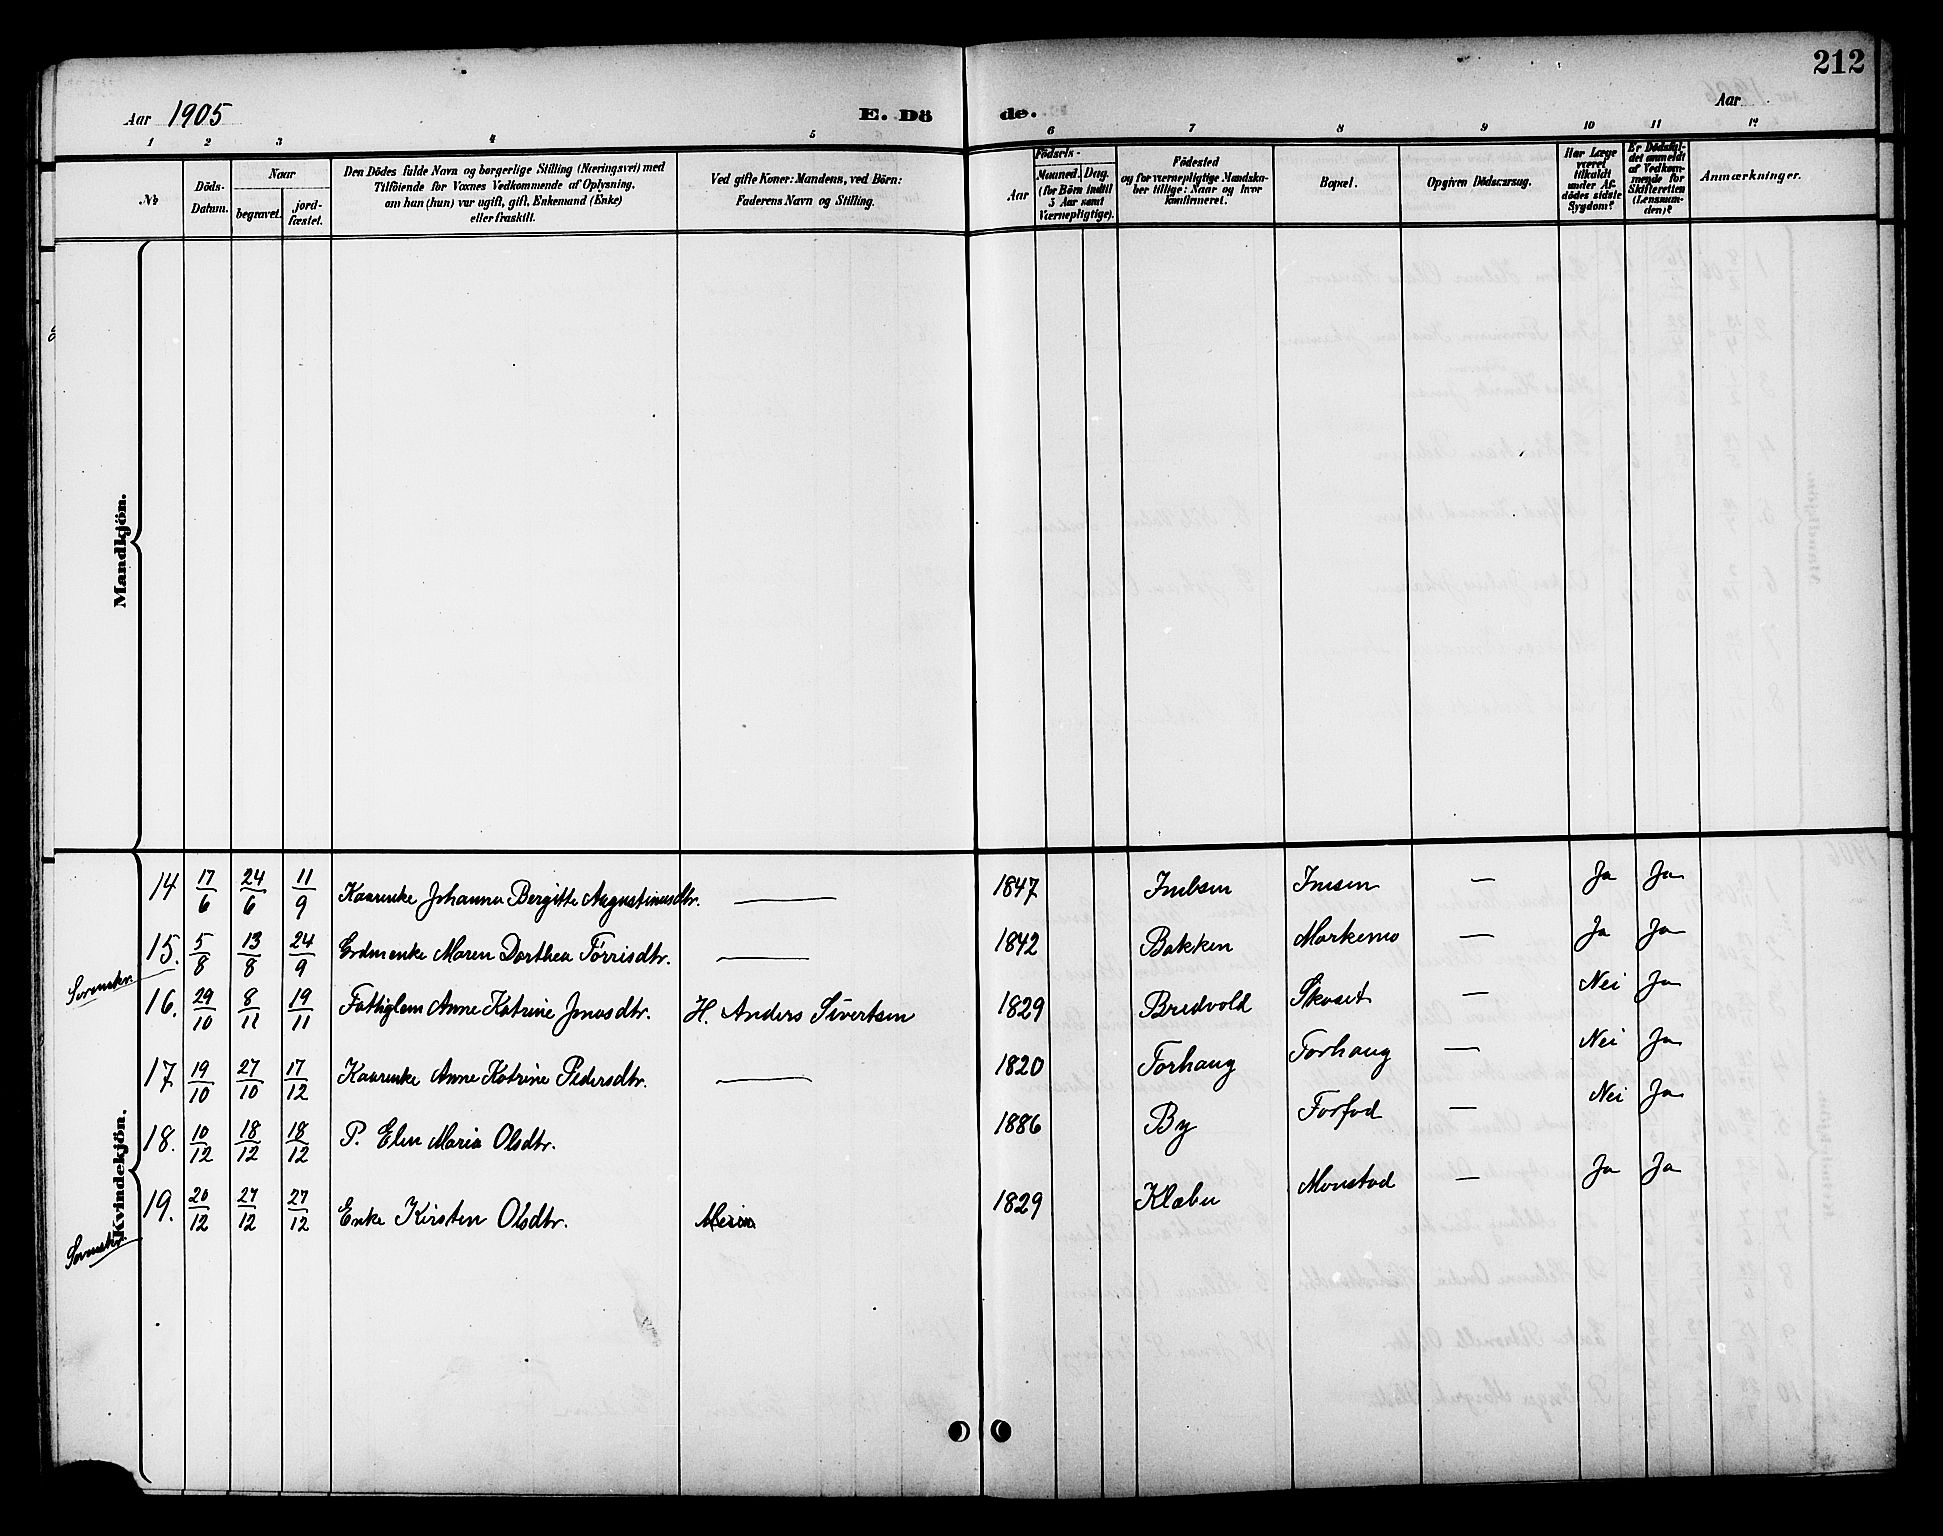 212
Aar 1905
E. Dö de.
Aar
1 2 3 4 5 6 7 8 9 10 11 12
No
Döds-
Datum.
Naar
begravet.
jord-
fæstet.
Den Dödes fulde Navn og borgerlige Stilling (Næringsvei) med
Tilföiende for Voxnes Vedkommende af Oplysning,
om han (hun) var ugift, gift, Enkemand (Enke)
eller fraskilt.
Ved gifte Koner: Mandens, ved Börn:
Faderens Navn og Stilling.
Födsels-
Aar
Maaned. Dag.
(for Börn indtil
5 Aar samt
Værnepligtige).
Födested
og for værnepligtige Mandska-
ber tillige: Naar og hvor
konfirmeret.
Bopæl.
Opgiven Dödsaarsag.
Har Læge
været
tilkaldt
under Af-
dödes sidste
Sygdom?
Er Dödsfal-
det anmeldt
af Vedkom-
mende for
Skifteretten
(Lensman-
den)?
Anmærkninger.
Mandkjön.
Kvindekjön.
14 17/6 24/6 11/9 Kaarenke Johanna Bergitte Augustinusdtr. — 1847 Imbsen Imsen — Ja Ja
15. 5/8 13/8 24/9 Erdmenke Maren Dorthea Törrisdtr. — 1842 Bakken Markemo — Ja Ja
16. 29/10 8/11 19/11 Fattiglem Anne Katrine Jonasdtr. H. Anders Sivertsen 1829 Bredvold Skaset — Nei Ja
17 19/10 27/10 17/12 Kaarenke Anne Katrine Pedersdtr. — 1820 Forhaug Forhaug — Nei Ja
18. 10/12 18/12 18/12 P. Elen Maria Olsdtr. 1886 By Forfod — Nei Ja
19. 20/12 27/12 27/12 Enke Kirsten Olsdtr. 1829 Klæbu Monstad — Ja Ja